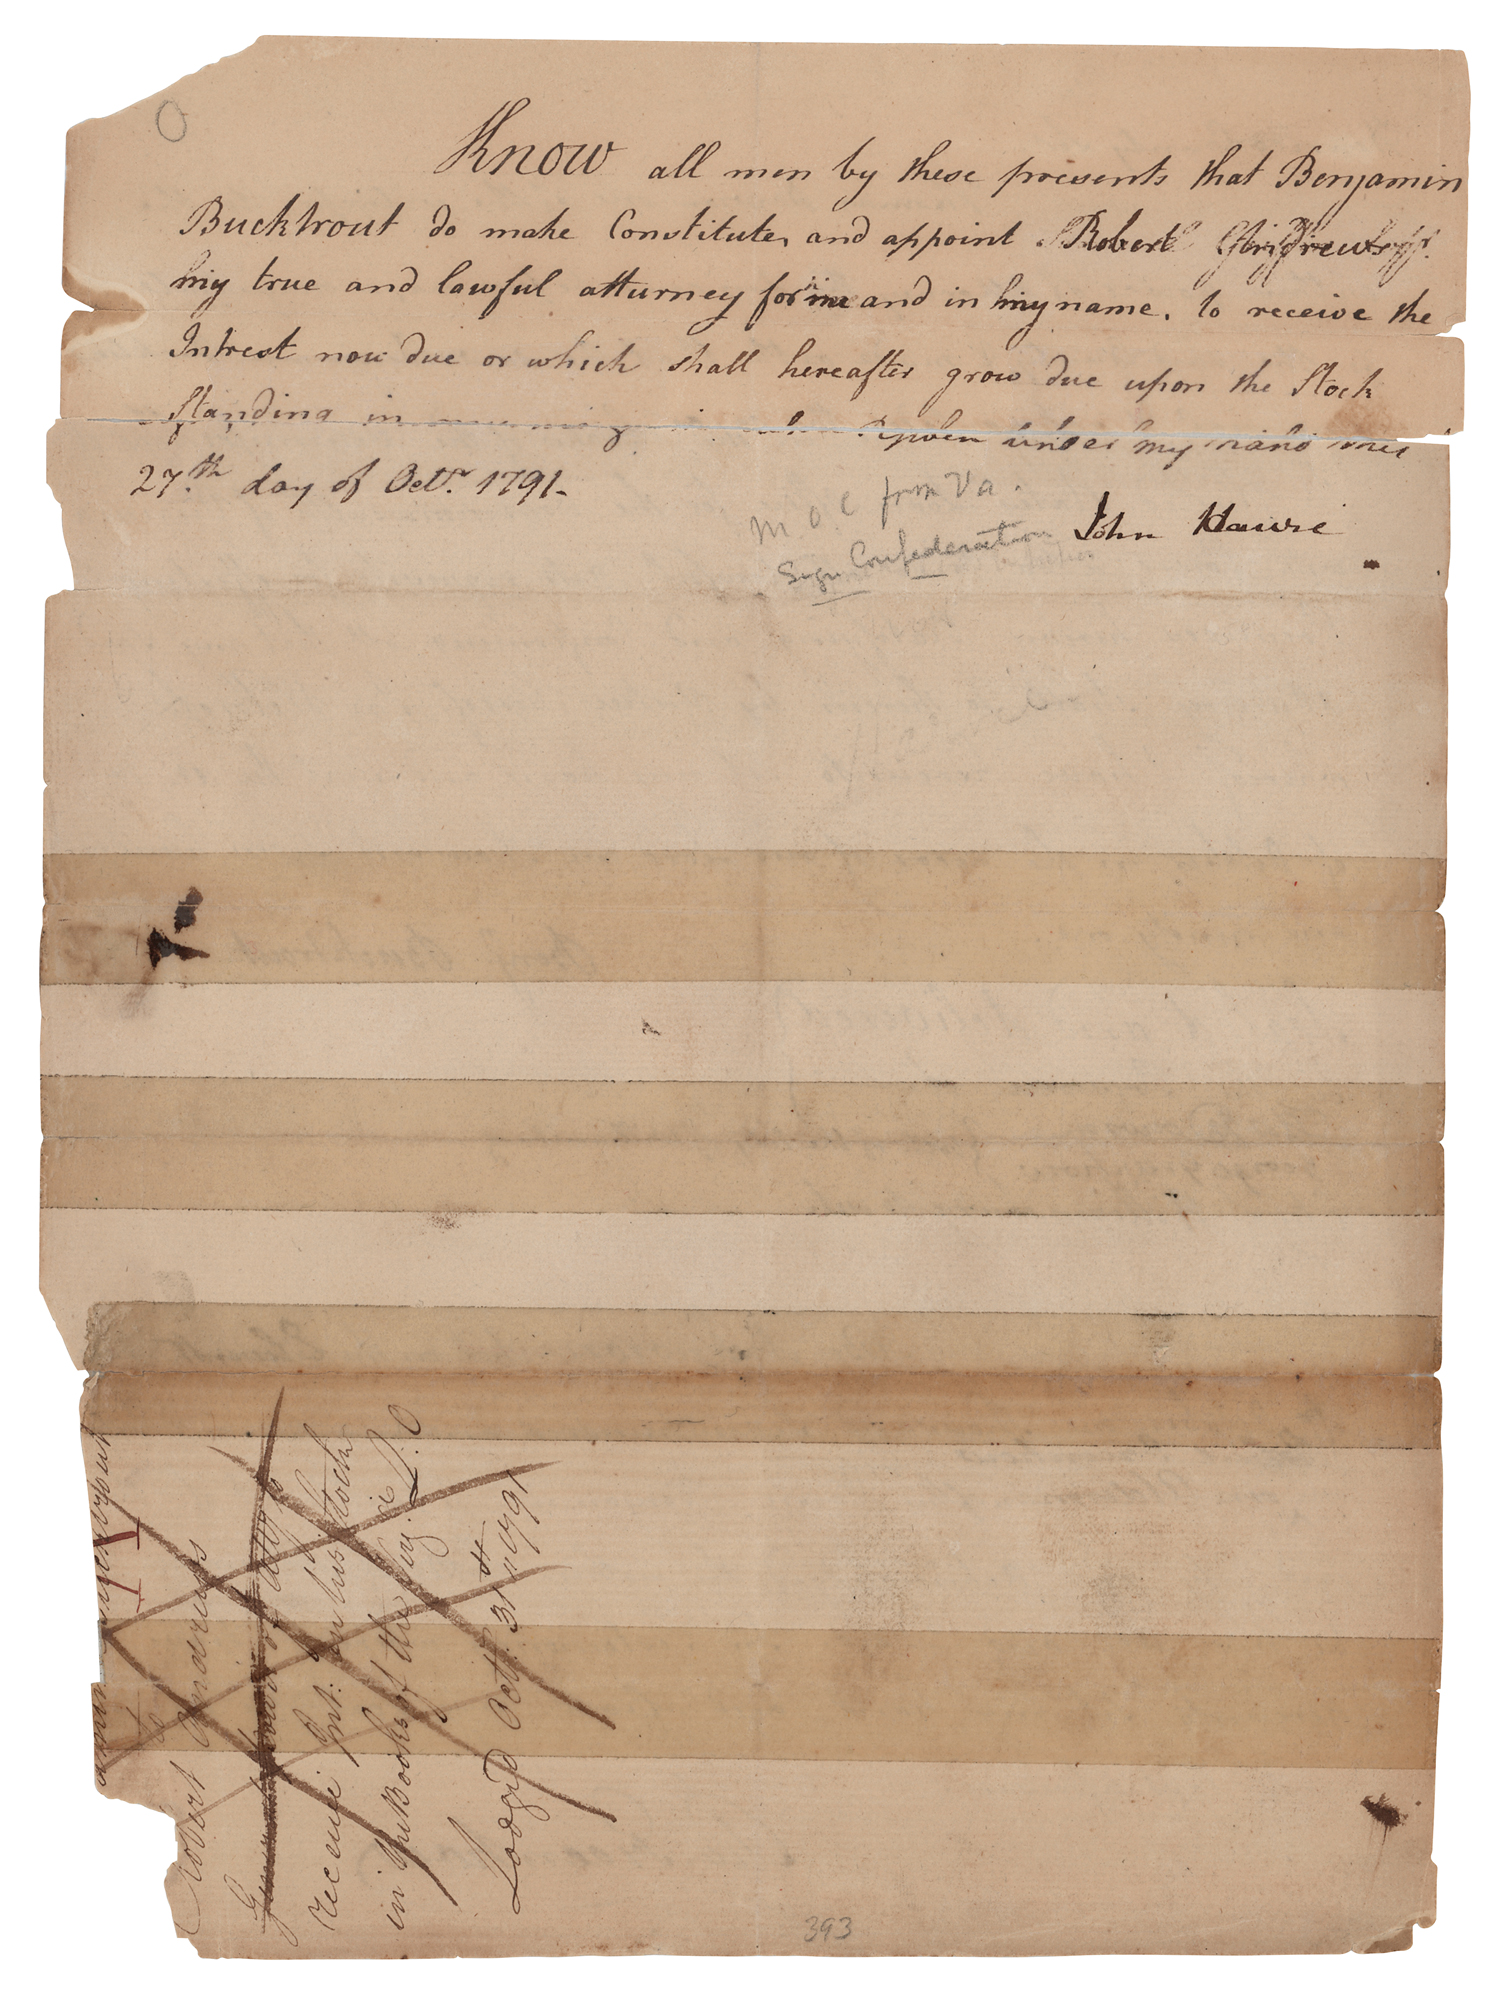 Know all men by these presents that Benjamin
Bucktrout do make Constitute, and appoint Robert Andrews
my true and lawful atturney for me and in my name, to receive the
Intrest now due or which shall hereafter grow due upon the Stock
Standing in under my hand
27.th day of Octr. 1791.
M O C from Va.
Sign Confederation
John Hawse
Robert Andrews
Power of Atty to
receive Int: on his Stock
in the Books of the
Lodg'd Octr. 31st 1791
393